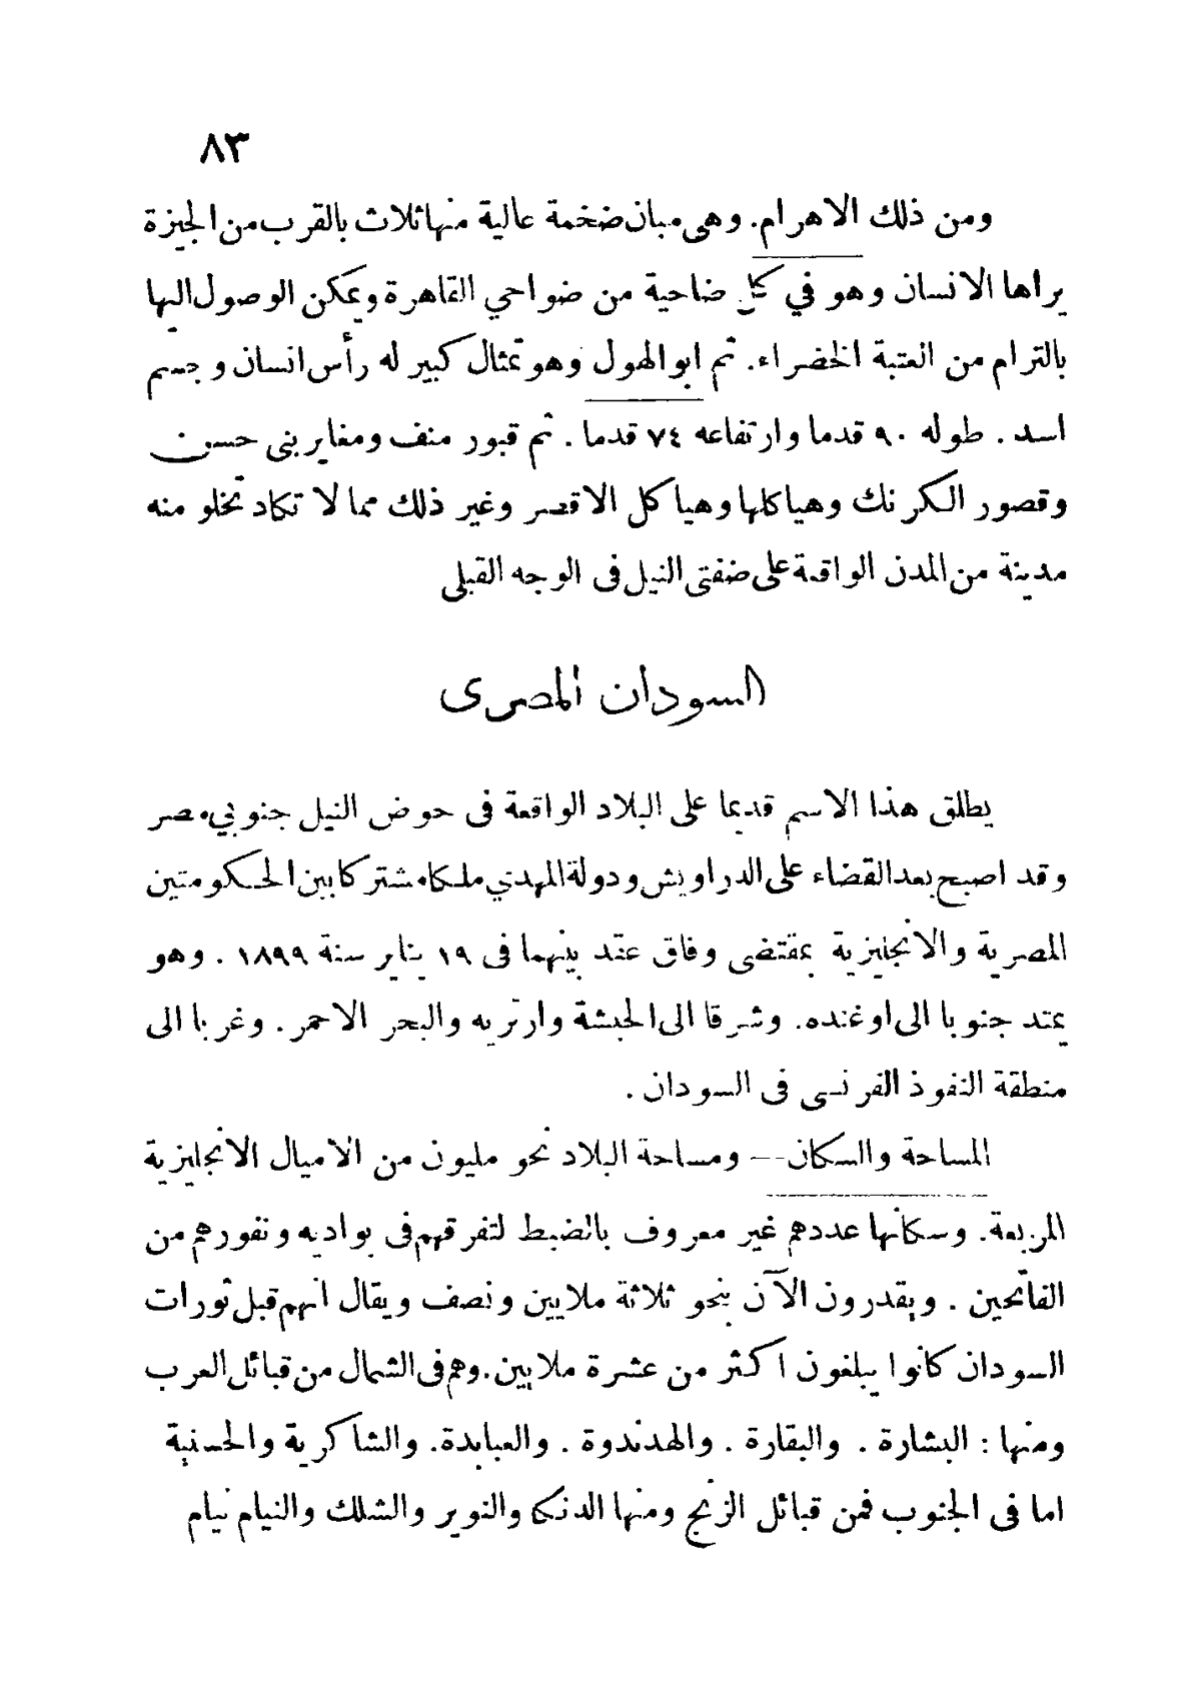 ٨٣
ومن ذلك الاهرام. وهى مبان ضخمة عالية منها ثلاث بالقرب من الجيزة
يراها الانسان وهو في كل ضاحية من ضواحي القاهرة ويمكن الوصول اليها
بالترام من العتبة الخضراء. ثم ابو الهول وهو تمثال كبير له رأس انسان وجسم
اسد . طوله ٩٠ قدما وارتفاعه ٧٤ قدما . ثم قبور منف ومغاير بنى حسن
وقصور الكرنك وهياكلها وهياكل الاقصر وغير ذلك مما لا تكاد تخلو منه
مدينة من المدن الواقعة على ضفتى النيل فى الوجه القبلى
السودان المصرى
يطلق هذا الاسم قديما على البلاد الواقعة فى حوض النيل جنوبي مصر
وقد اصبح بعد القضاء على الدراويش ودولة المهدي ملكا مشتركا بين الحكومتين
المصرية والانجليزية بمقتضى وفاق عقد بينهما فى ١٩ يناير سنة ١٨٩٩ . وهو
يمتد جنوبا الى اوغنده. وشرقا الى الحبشة وارتريه والبحر الاحمر . وغربا الى
منطقة النفوذ الفرنسى فى السودان .
المساحة والسكان -- ومساحة البلاد نحو مليون من الاميال الانجليزية
المربعة. وسكانها عددهم غير معروف بالضبط لتفرقهم فى بواديه ونفورهم من
الفاتحين . ويقدرون الآن بنحو ثلاثة ملايين ونصف ويقال انهم قبل ثورات
السودان كانوا يبلغون اكثر من عشرة ملايين. وهم فى الشمال من قبائل العرب
ومنها : البشارة . والبقارة . والهدندوة . والعبابدة. والشاكرية والحسنية
اما فى الجنوب فمن قبائل الزنج ومنها الدنكا والنوير والشلك والنيام نيام